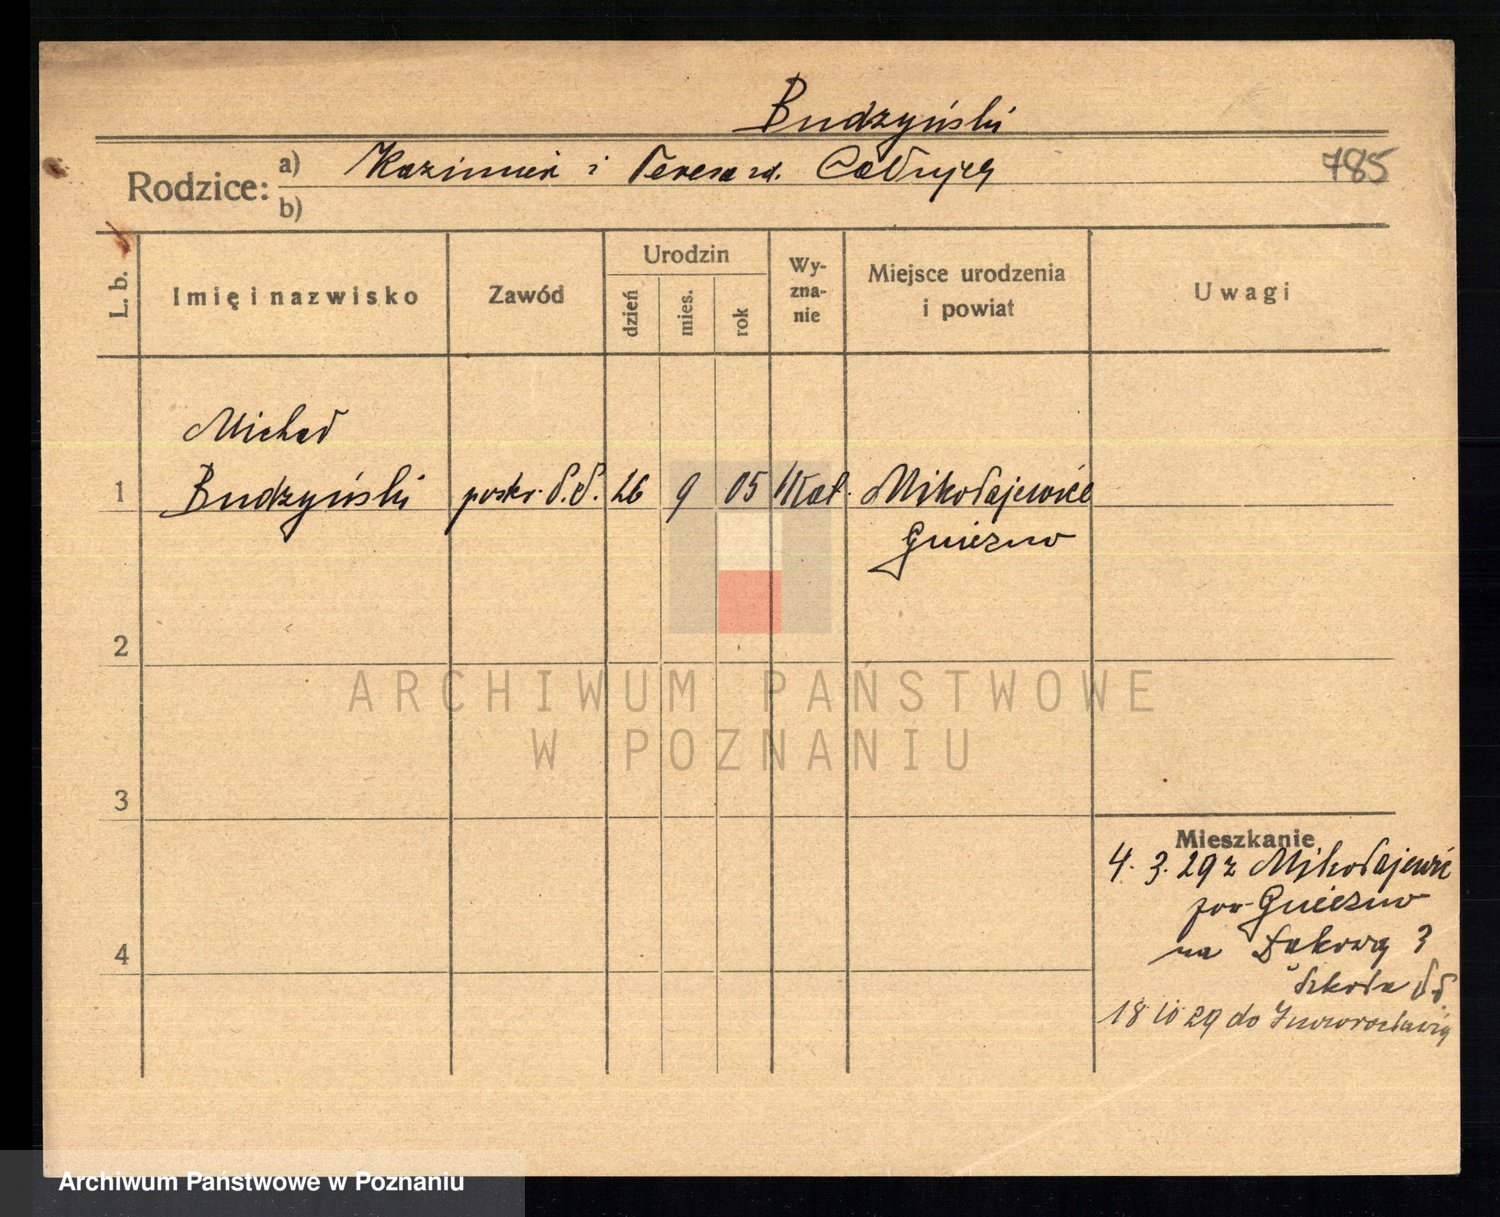 Budzyński
Rodzice: a) Kazimierz i Teresa zd.
785
b)
L. b.
Imię i nazwisko
Zawód
Urodzin
dzień
mies.
rok
Wy-
zna-
nie
Miejsce urodzenia
i powiat
Uwagi
Michał
1 Budzyński 26 9 05 Kat. Mikołajewice
Gniezno
2
ARCHIWUM PAŃSTWOWE
W POZNANIU
3
Mieszkanie
4. 3. 29 z Mikołajewic
pow Gniezno
4
na Łąkową 3
Szkoła
18 10 29 do Inowrocławia
Archiwum Państwowe w Poznaniu